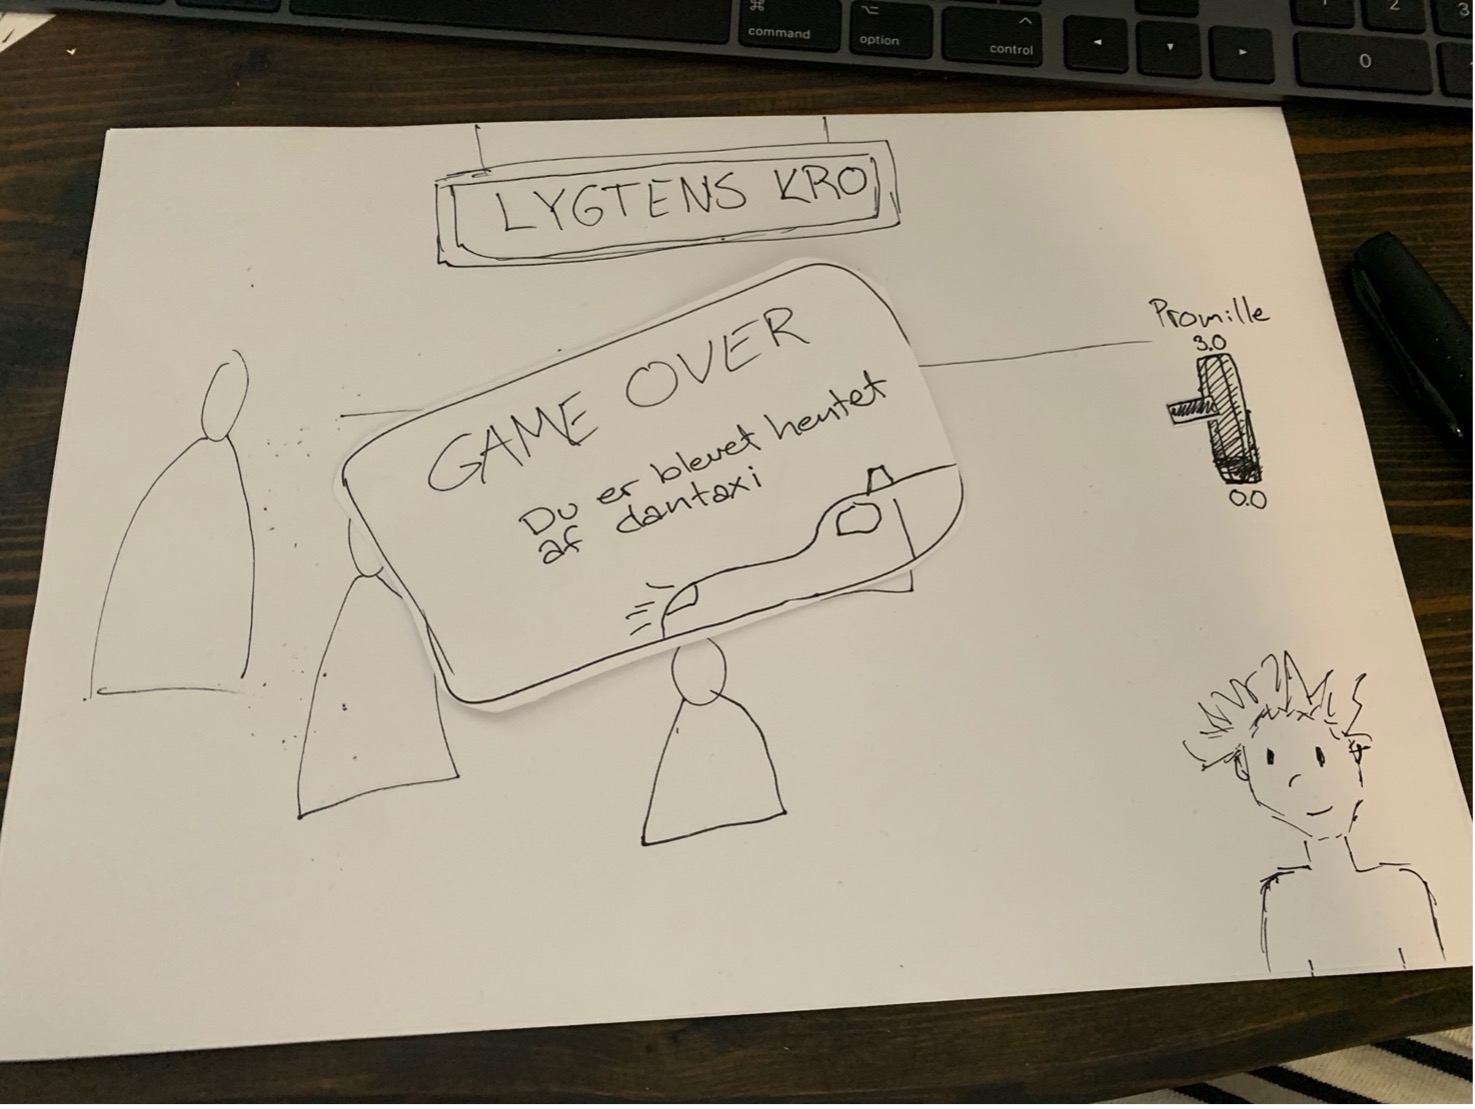 command
option
control
1
2
3
0
LYGTENS KRO
GAME OVER
Du er blevet hentet
af dantaxi
Promille
3.0
0.0